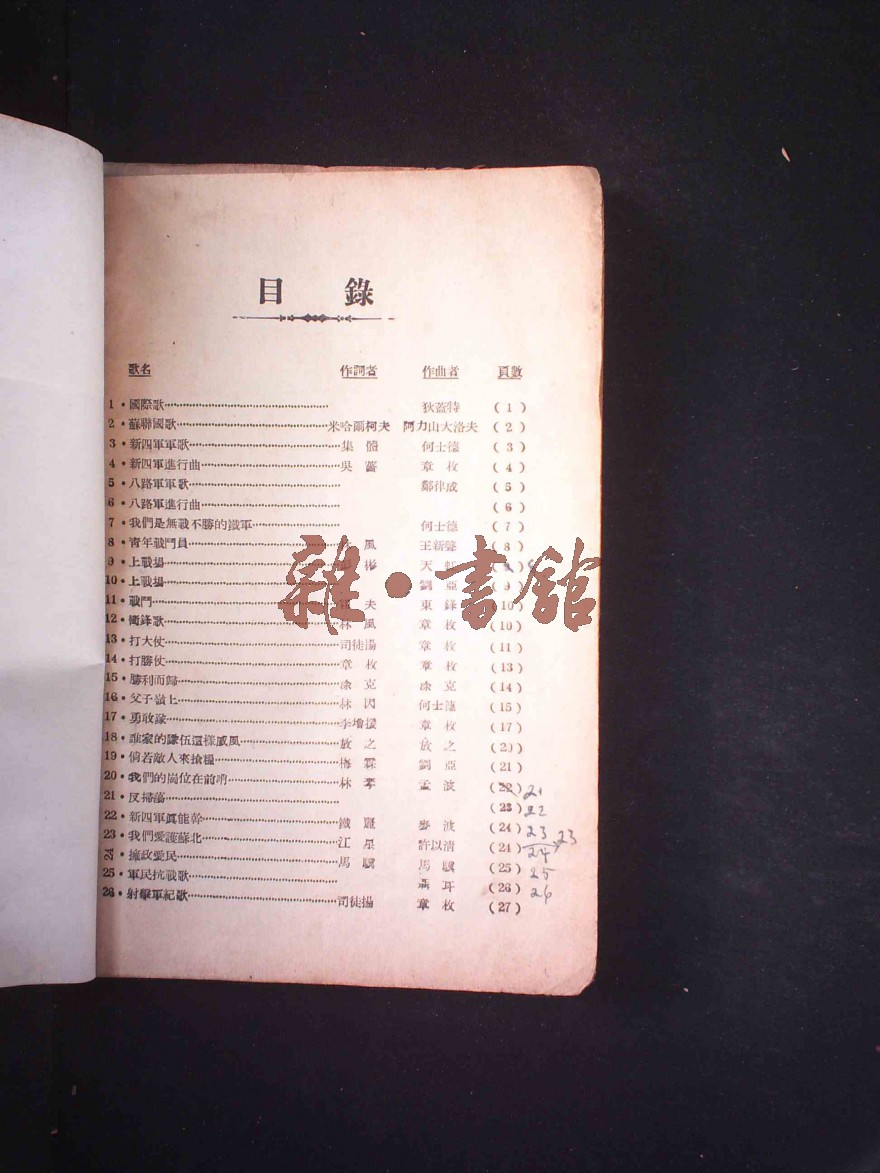 目錄
歌名 作詞者 作曲者 頁數
1・國際歌 狄蓋特 (1)
2・蘇聯國歌 米哈爾柯夫 阿力山大洛夫 (2)
3・新四軍軍歌 集體 何士德 (3)
4・新四軍進行曲 吳蔷 章枚 (4)
5・八路軍軍歌 鄭律成 (5)
6・八路軍進行曲 (6)
7・我們是無戰不勝的鐵軍 何士德 (7)
8・青年戰鬥員 風 王新聲 (8)
9・上戰場 彬 天
10・上戰場 劉亞 (9)
11・戰鬥 夫 東鋒 (10)
12・衝鋒歌 林風 章枚 (10)
13・打大仗 司徒揚 章枚 (11)
14・打勝仗 章枚 章枚 (13)
15・勝利而歸 涂克 涂克 (14)
16・父子嶺上 林因 何士德 (15)
17・勇敢隊 李增援 章枚 (17)
18・誰家的隊伍這樣威風 放之 放之 (20)
19・倘若敵人來搶糧 梅霖 劉亞 (21)
20・我們的崗位在前哨 林琴 孟波 (22) 21
21・反掃蕩 (23) 22
22・新四軍眞能幹 鐵 麥波 (24) 23
23・我們愛護蘇北 江星 許以清 (24) 24 23
24・擁政愛民 馬驥 馬驥 (25) 25
25・軍民抗戰歌 聶耳 (26) 26
26・射擊軍紀歌 司徒揚 章枚 (27)
雜・書館